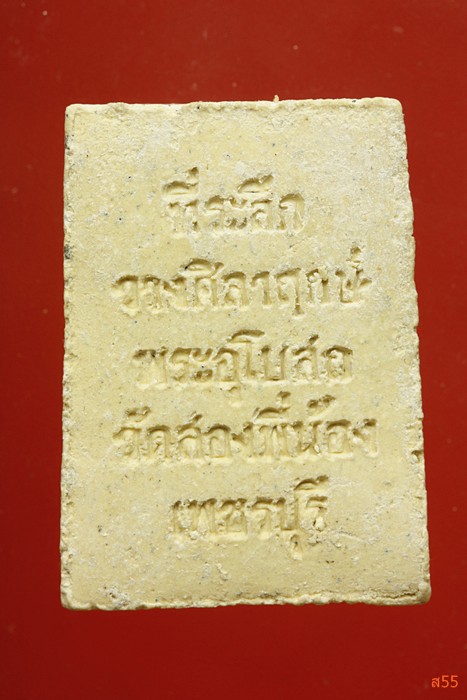 ที่ระลึก
วางศิลาฤกษ์
พระอุโบสถ
วัดสองพี่น้อง
เพชรบุรี
ส55